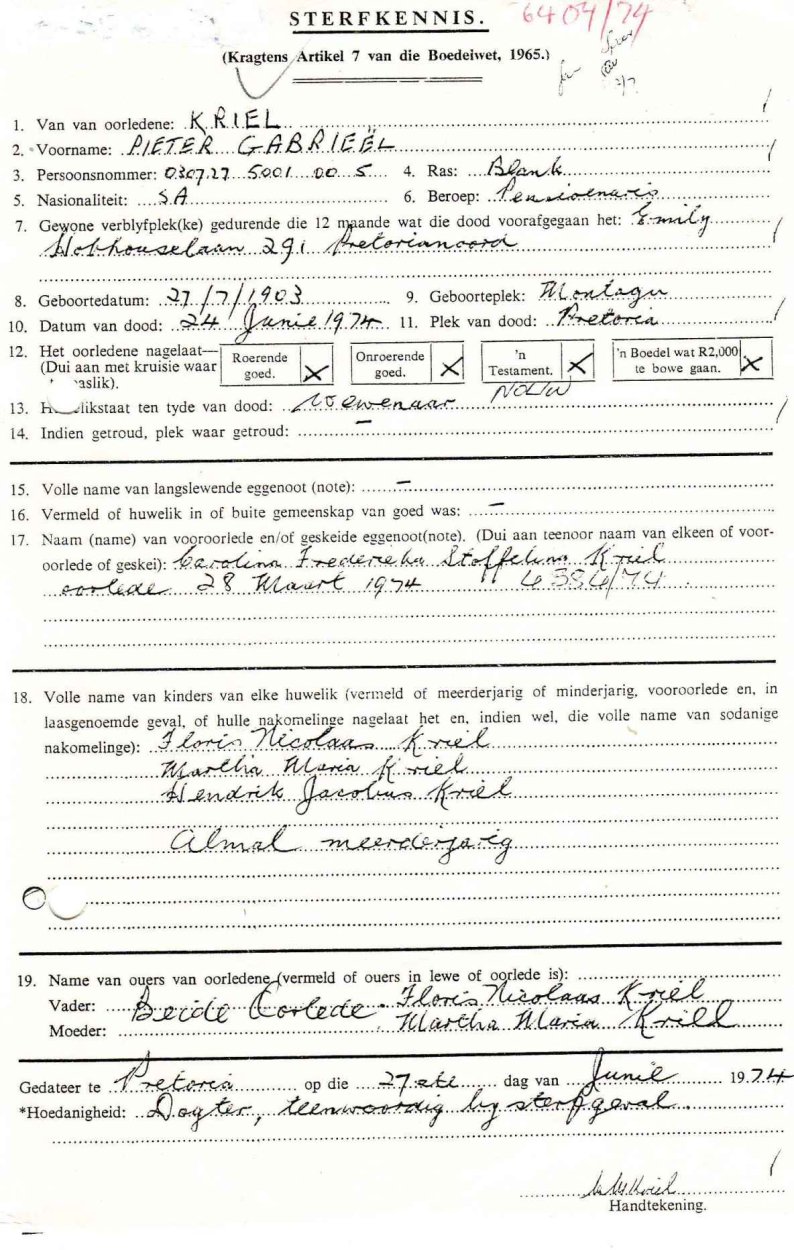 STERFKENNIS.
6404/74
(Kragtens Artikel 7 van die Boedelwet, 1965.)
1. Van van oorledene: KRIEL
2. Voorname: PIETER GABRIEËL
3. Persoonsnommer: 030727 5001 00 5 4. Ras: Blank
5. Nasionaliteit: SA 6. Beroep: Pensioenaris
7. Gewone verblyfplek(ke) gedurende die 12 maande wat die dood voorafgegaan het: Emily
Hobhouselaan 291 Pretorianoord
8. Geboortedatum: 27/7/1903 9. Geboorteplek: Montagu
10. Datum van dood: 24 Junie 1974 11. Plek van dood: Pretoria
12. Het oorledene nagelaat— Roerende goed. X Onroerende goed. X 'n Testament. X 'n Boedel wat R2,000 te bowe gaan. X
(Dui aan met kruisie waar
aslik).
NOUW
13. H likstaat ten tyde van dood: Wewenaar
14. Indien getroud, plek waar getroud: —
15. Volle name van langslewende eggenoot (note): —
16. Vermeld of huwelik in of buite gemeenskap van goed was: —
17. Naam (name) van vooroorlede en/of geskeide eggenoot(note). (Dui aan teenoor naam van elkeen of voor-
oorlede of geskei): Carolina Frederika Stoffelina Kriel
oorlede 28 Maart 1974 4384/74
18. Volle name van kinders van elke huwelik (vermeld of meerderjarig of minderjarig, vooroorlede en, in
laasgenoemde geval, of hulle nakomelinge nagelaat het en, indien wel, die volle name van sodanige
nakomelinge): Floris Nicolaas Kriel
Martha Maria Kriel
Hendrik Jacobus Kriel
Almal meerderjarig
19. Name van ouers van oorledene (vermeld of ouers in lewe of oorlede is):
Vader: Beide Oorlede. Floris Nicolaas Kriel
Moeder: Martha Maria Kriel
Gedateer te Pretoria op die 27ste dag van Junie 1974
*Hoedanigheid: Dogter, teenwoordig by sterfgeval.
Handtekening.